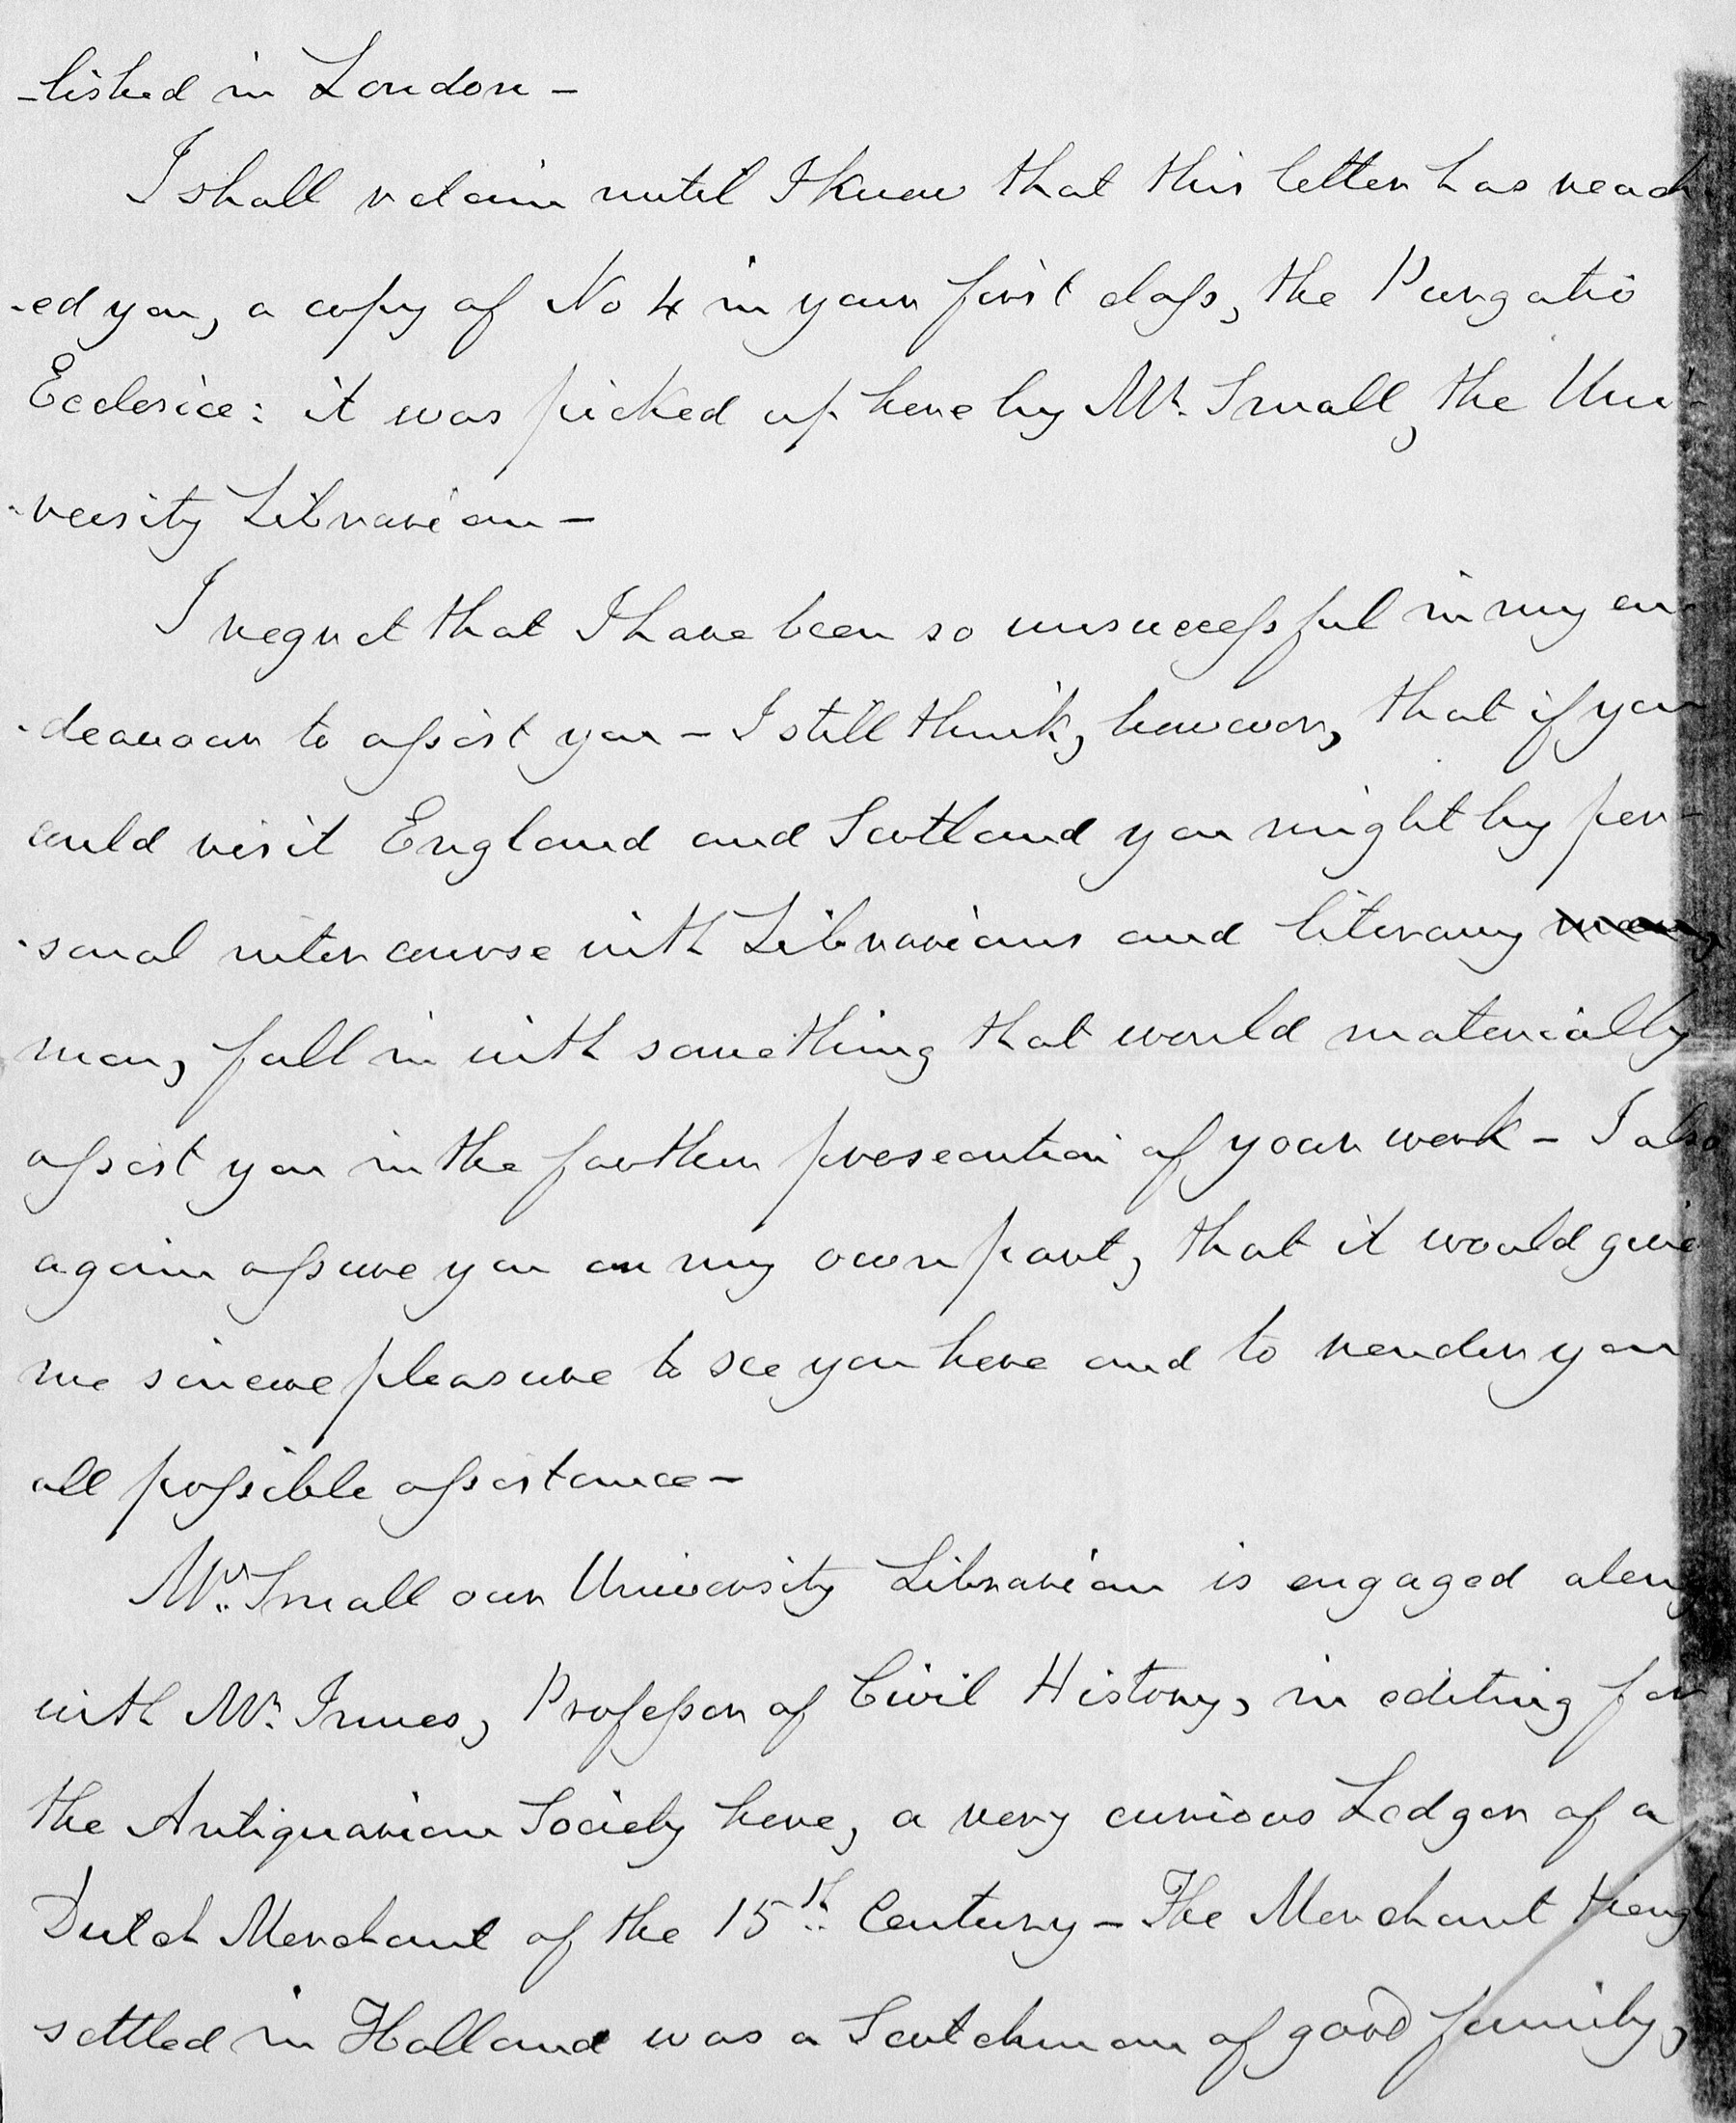 -lished in London -
I shall retain until I know that this letter has reach
-ed you, a copy of No 4 in your first class, the Purgatio
Ecclesiæ: it was picked up here by Mr. Small, the Uni-
-versity Librarian -
I regret that I have been so unsuccessful in my en-
-deavour to assist you - I still think, however, that if you
could visit England and Scotland you might by per-
-sonal intercourse with Librarians and literary
men, fall in with something that would materially
assist you in the farther prosecution of your work - I also
again assure you on my own part, that it would give
me sincere pleasure to see you here and to render you
all possible assistance -
Mr. Small our University Librarian is engaged along
with Mr. Innes, Professor of Civil History, in editing for
the Antiquarian Society here, a very curious Ledger of a
Dutch Merchant of the 15th Century - The Merchant though
settled in Holland was a Scotchman of good family,